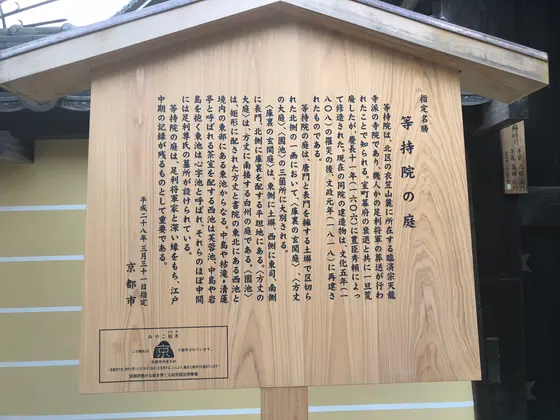 指定名勝
等持院の庭
等持院は、北区の衣笠山麓に所在する臨済宗天龍
寺派の寺院であり、幾人かの足利将軍の葬送が行わ
れたことで知られる。室町幕府の衰退と共に一旦荒
廃したが、慶長十一年(一六〇六)に豊臣秀頼によっ
て修造された。現在の同院の建造物は、文化五年(一
八〇八)の罹災の後、文政元年(一八一八)に再建さ
れたものである。
等持院の庭は、唐門と表門を擁する土塀で区切ら
れた北側の一画において、〈庫裏の玄関庭〉、〈方丈
の大庭〉、〈園池〉の三箇所に大別される。
〈庫裏の玄関庭〉は、東側に土塀、西側に東司、南側
に表門、北側に庫裏を配する平坦地にある。〈方丈の
大庭〉は、方丈に南接する白州の庭である。〈園池〉
は、矩形に配された方丈と書院の東北にある西池と
境内の東部にある東池からなる。中島や枯滝・清漣
亭と呼ばれる茶室を配する西池は芙蓉池、中島や岩
島を抱く東池は心字池と呼ばれ、それらのほぼ中間
には足利尊氏の墓所が設けられている。
等持院の庭は、足利将軍家と深い縁をもち、江戸
中期の記録が残るものとして重要である。
平成二十八年三月三十一日指定
京都市
みやこ杣木
京